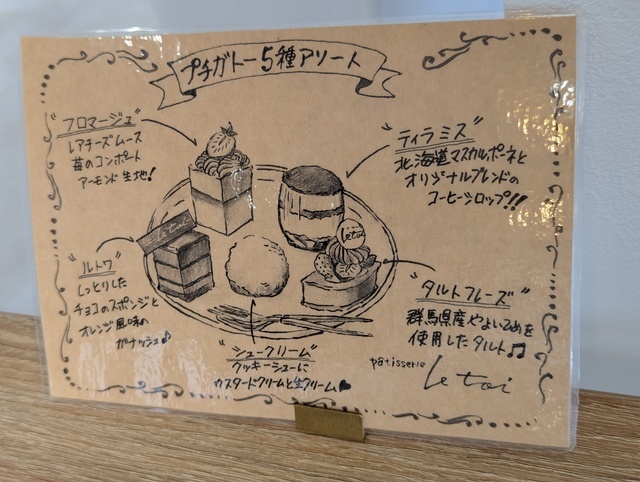 プチガトー5種アソート
"フロマージュ"
レアチーズムース
苺のコンポート
アーモンド生地!
"ティラミス"
北海道マスカルポーネと
オリジナルブレンドの
コーヒーシロップ!!
"ルトワ"
しっとりした
チョコのスポンジと
オレンジ風味の
ガナッシュ♪
Le toi
Le toi
"シュークリーム"
クッキーシューに
カスタードクリームと生クリーム♥
"タルトフレーズ"
群馬県産やよいひめを
使用したタルト♫
pâtisserie
Le toi